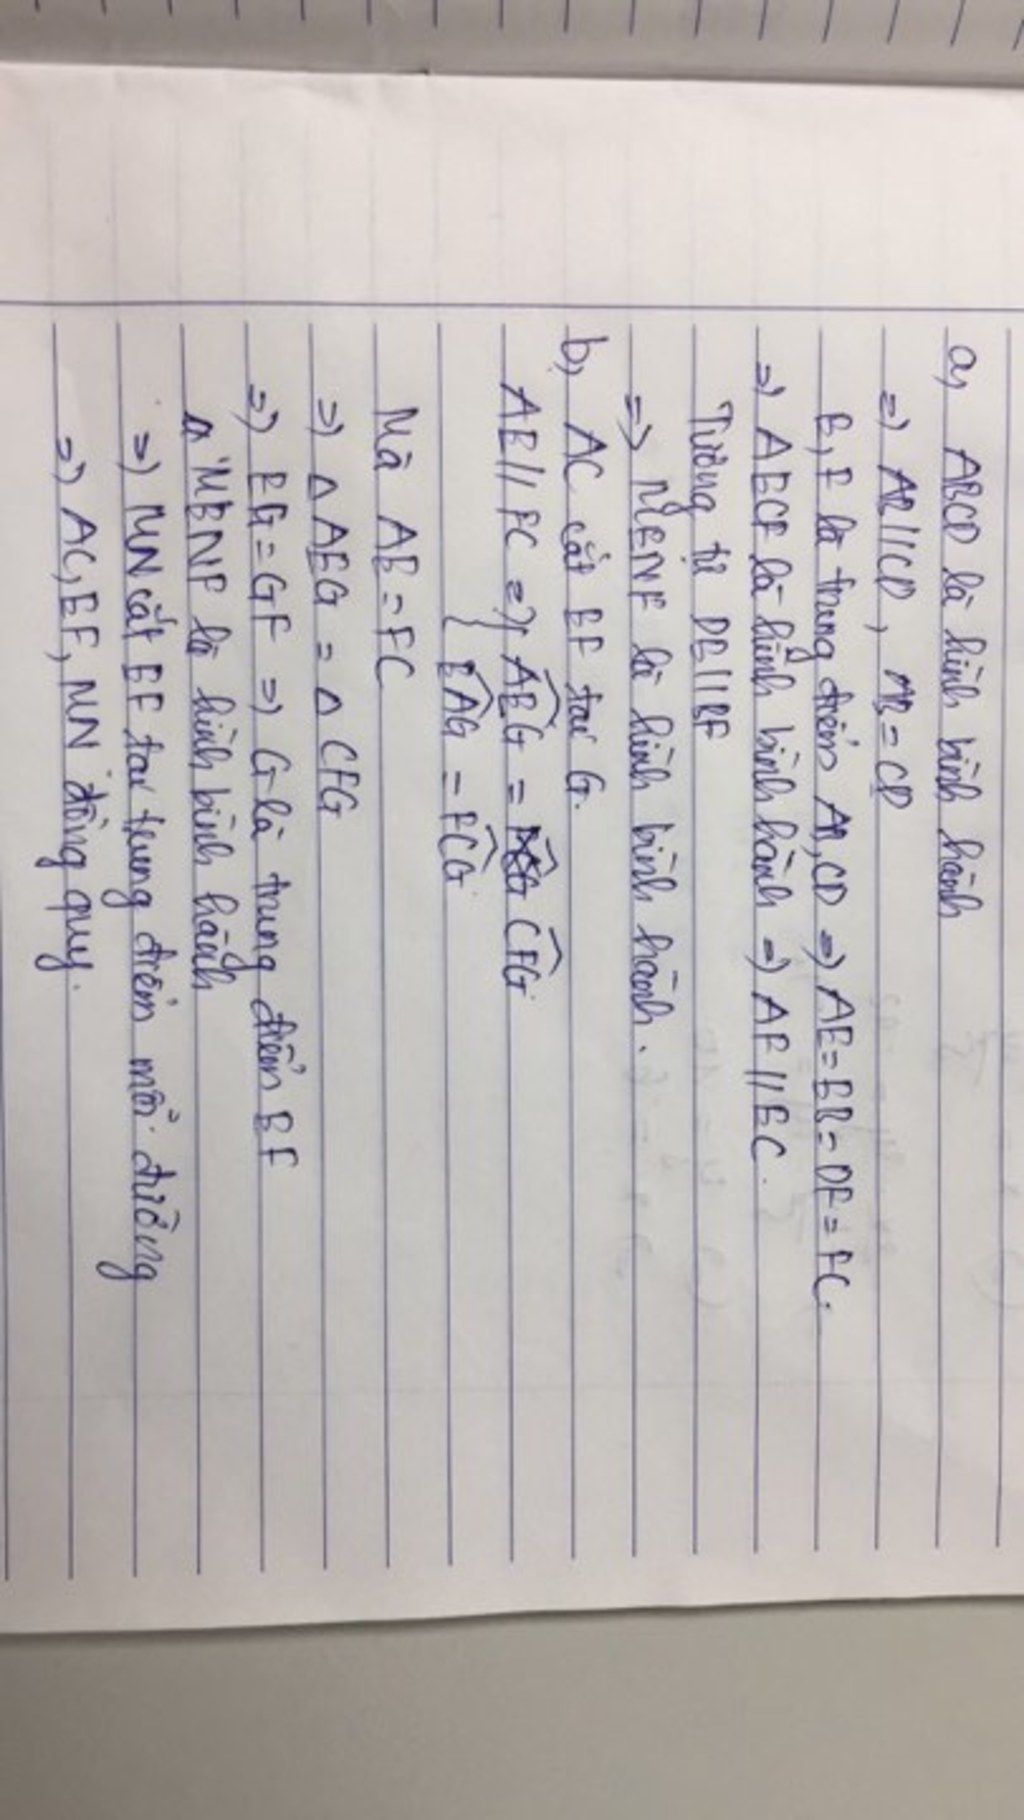 a, ABCD là hình bình hành
=> AB//CD, AB=CD
E, F là trung điểm AB, CD => AE=EB=DF=FC.
=> AECF là hình bình hành => AF // EC.
Tương tự DE//BF
=> MENF là hình bình hành.
b, AC cắt EF tại G.
AE// FC => { AEG = CFG
EAG = FCG.
Mà AE=FC
=> Δ AEG = Δ CFG
=> EG=GF => G là trung điểm EF
MENF là hình bình hành
=> MN cắt EF tại trung điểm mỗi đường
=> AC, EF, MN đồng quy.